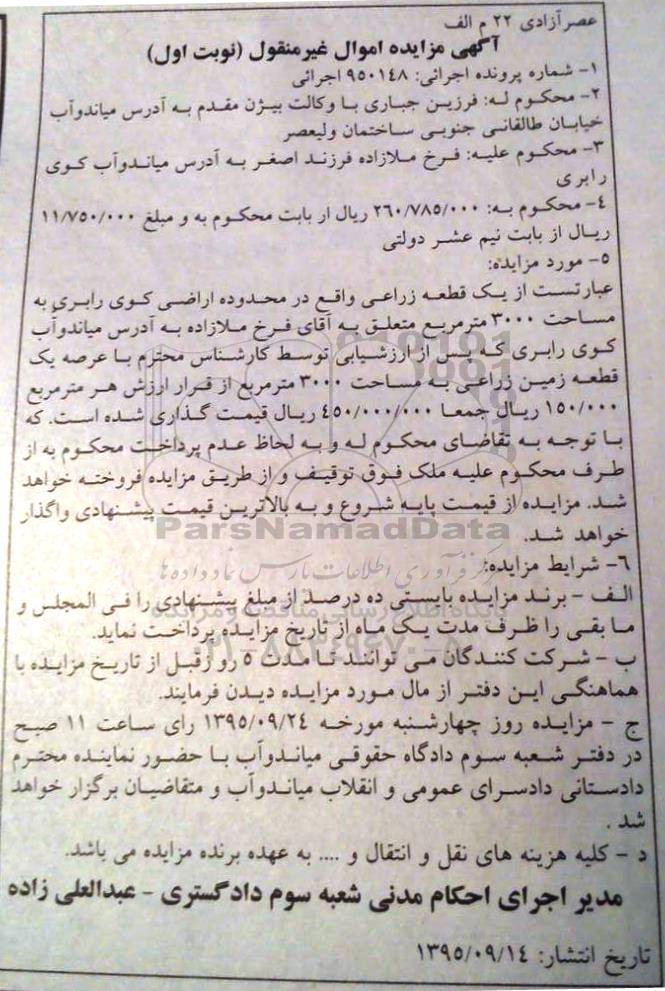 عصرآزادی ۲۲ م الف
آگهی مزایده اموال غیرمنقول (نوبت اول)
۱- شماره پرونده اجرائی: ۹۵۰۱۴۸ اجرائی
۲- محکوم له: فرزین جباری با وکالت بیژن مقدم به آدرس میاندوآب
خیابان طالقانی جنوبی ساختمان ولیعصر
۳- محکوم علیه: فرخ ملازاده فرزند اصغر به آدرس میاندوآب کوی
رابری
٤- محکوم به: ۲٦۰/۷۸۵/۰۰۰ ریال ار بابت محکوم به و مبلغ ۱۱/۷۵۰/۰۰۰
ریال از بابت نیم عشر دولتی
۵- مورد مزایده:
عبارتست از یک قطعه زراعی واقع در محدوده اراضی کوی رابری به
مساحت ۳۰۰۰ مترمربع متعلق به آقای فرخ ملازاده به آدرس میاندوآب
کوی رابری که پس از ارزشیابی توسط کارشناس محترم با عرصه یک
قطعه زمین زراعی به مساحت ۳۰۰۰ مترمربع از قرار ارزش هر مترمربع
۱۵۰/۰۰۰ ریال جمعا ٤۵۰/۰۰۰/۰۰۰ ریال قیمت گذاری شده است. که
با توجه به تقاضای محکوم له و به لحاظ عدم پرداخت محکوم به از
طرف محکوم علیه ملک فوق توقیف و از طریق مزایده فروخته خواهد
شد. مزایده از قیمت پایه شروع و به بالاترین قیمت پیشنهادی واگذار
خواهد شد.
ParsNamadData
٦- شرایط مزایده:
مرکز فرآوری اطلاعات پارس نماد داده ها
الف - برند مزایده بایستی ده درصد از مبلغ پیشنهادی را فی المجلس و
پایگاه اطلاع رسانی مناقصه و مزایده
ما بقی را ظرف مدت یک ماه از تاریخ مزایده پرداخت نماید.
ب - شرکت کنندگان می توانند تا مدت ۵ رو زقبل از تاریخ مزایده با
هماهنگی این دفتر از مال مورد مزایده دیدن فرمایند.
ج - مزایده روز چهارشنبه مورخه ۱۳۹۵/۰۹/۲٤ رای ساعت ۱۱ صبح
در دفتر شعبه سوم دادگاه حقوقی میاندوآب با حضور نماینده محترم
دادستانی دادسرای عمومی و انقلاب میاندوآب و متقاضیان برگزار خواهد
شد .
د - کلیه هزینه های نقل و انتقال و .... به عهده برنده مزایده می باشد.
مدیر اجرای احکام مدنی شعبه سوم دادگستری - عبدالعلی زاده
تاریخ انتشار: ۱۳۹۵/۰۹/۱٤